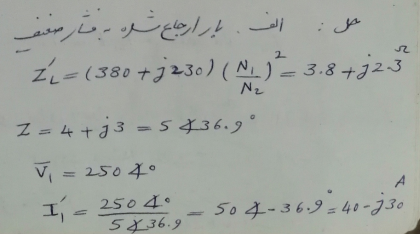 حل: الف. بار ارجاع شده به فشار ضعیف
Z'_L = (380 + j230) (N₁/N₂)² = 3.8 + j2.3 Ω
Z = 4 + j3 = 5 ∡36.9°
V̄₁ = 250 ∡0°
I'₁ = 250 ∡0° / 5 ∡36.9 = 50 ∡-36.9° = 40 - j30 A